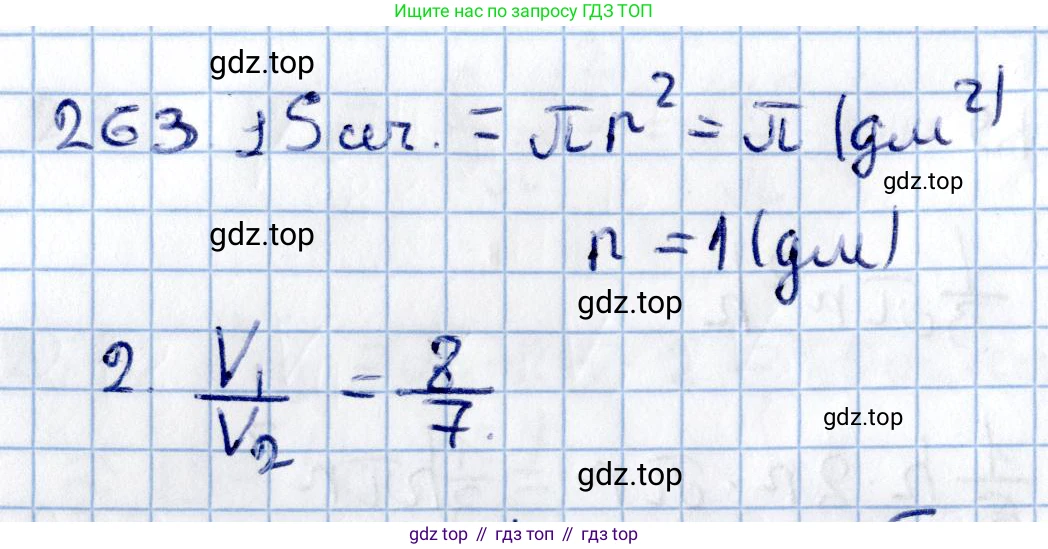 Ищите нас по запросу ГДЗ ТОП
gdz.top
263 1) Sсеч. = πr² = π (дм²)
gdz.top
gdz.top
r = 1 (дм)
gdz.top
2. V₁/V₂ = 8/7.
gdz.top
gdz.top
gdz top // гдз топ // gdz top